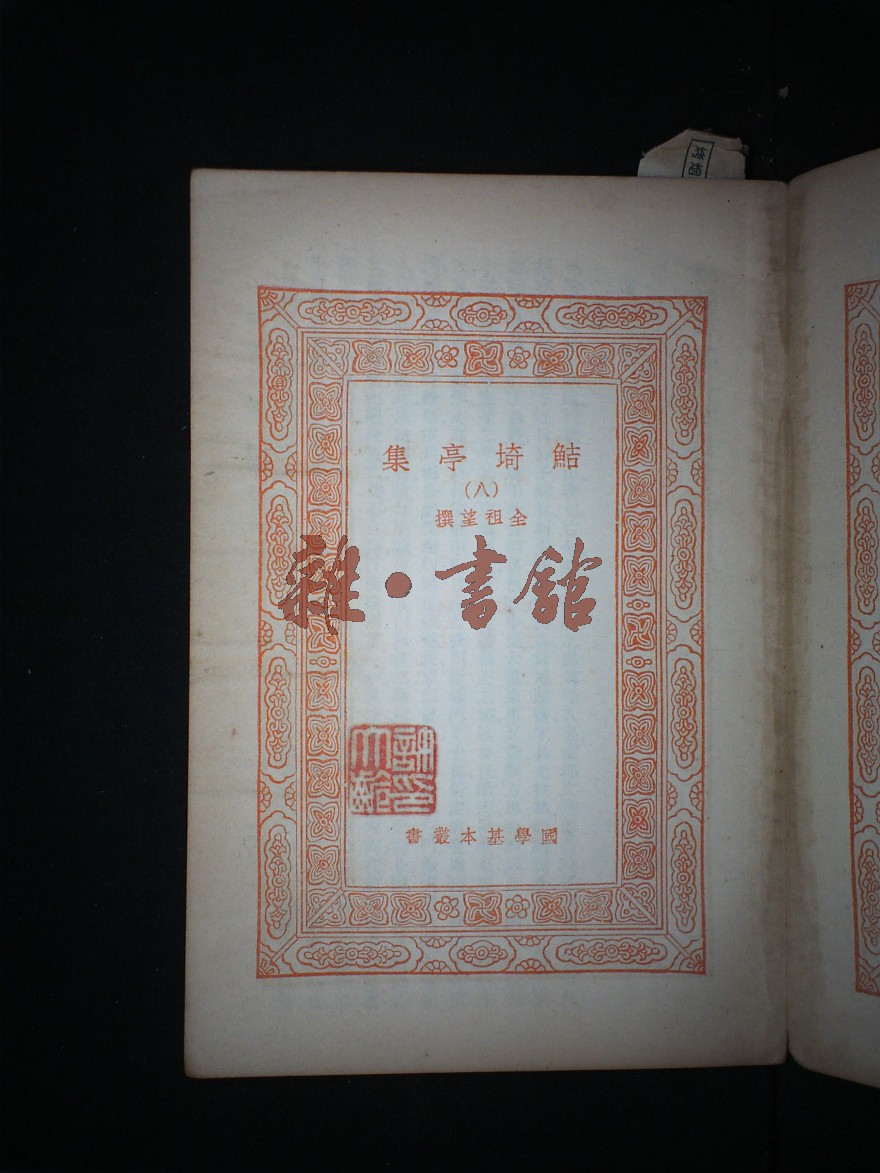 鮚埼亭集
(八)
全祖望撰
雜·書館
國學基本叢書